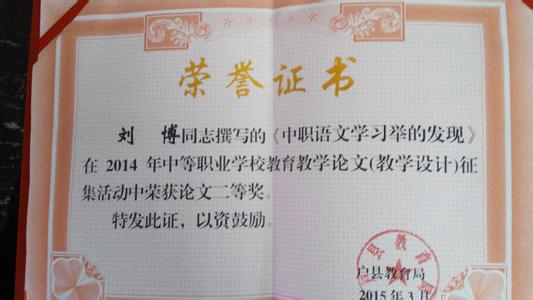 荣誉证书
刘 博同志撰写的《中职语文学习举的发现》
在 2014 年中等职业学校教育教学论文(教学设计)征
集活动中荣获论文二等奖。
特发此证，以资鼓励。
户县教育局
2015年3月